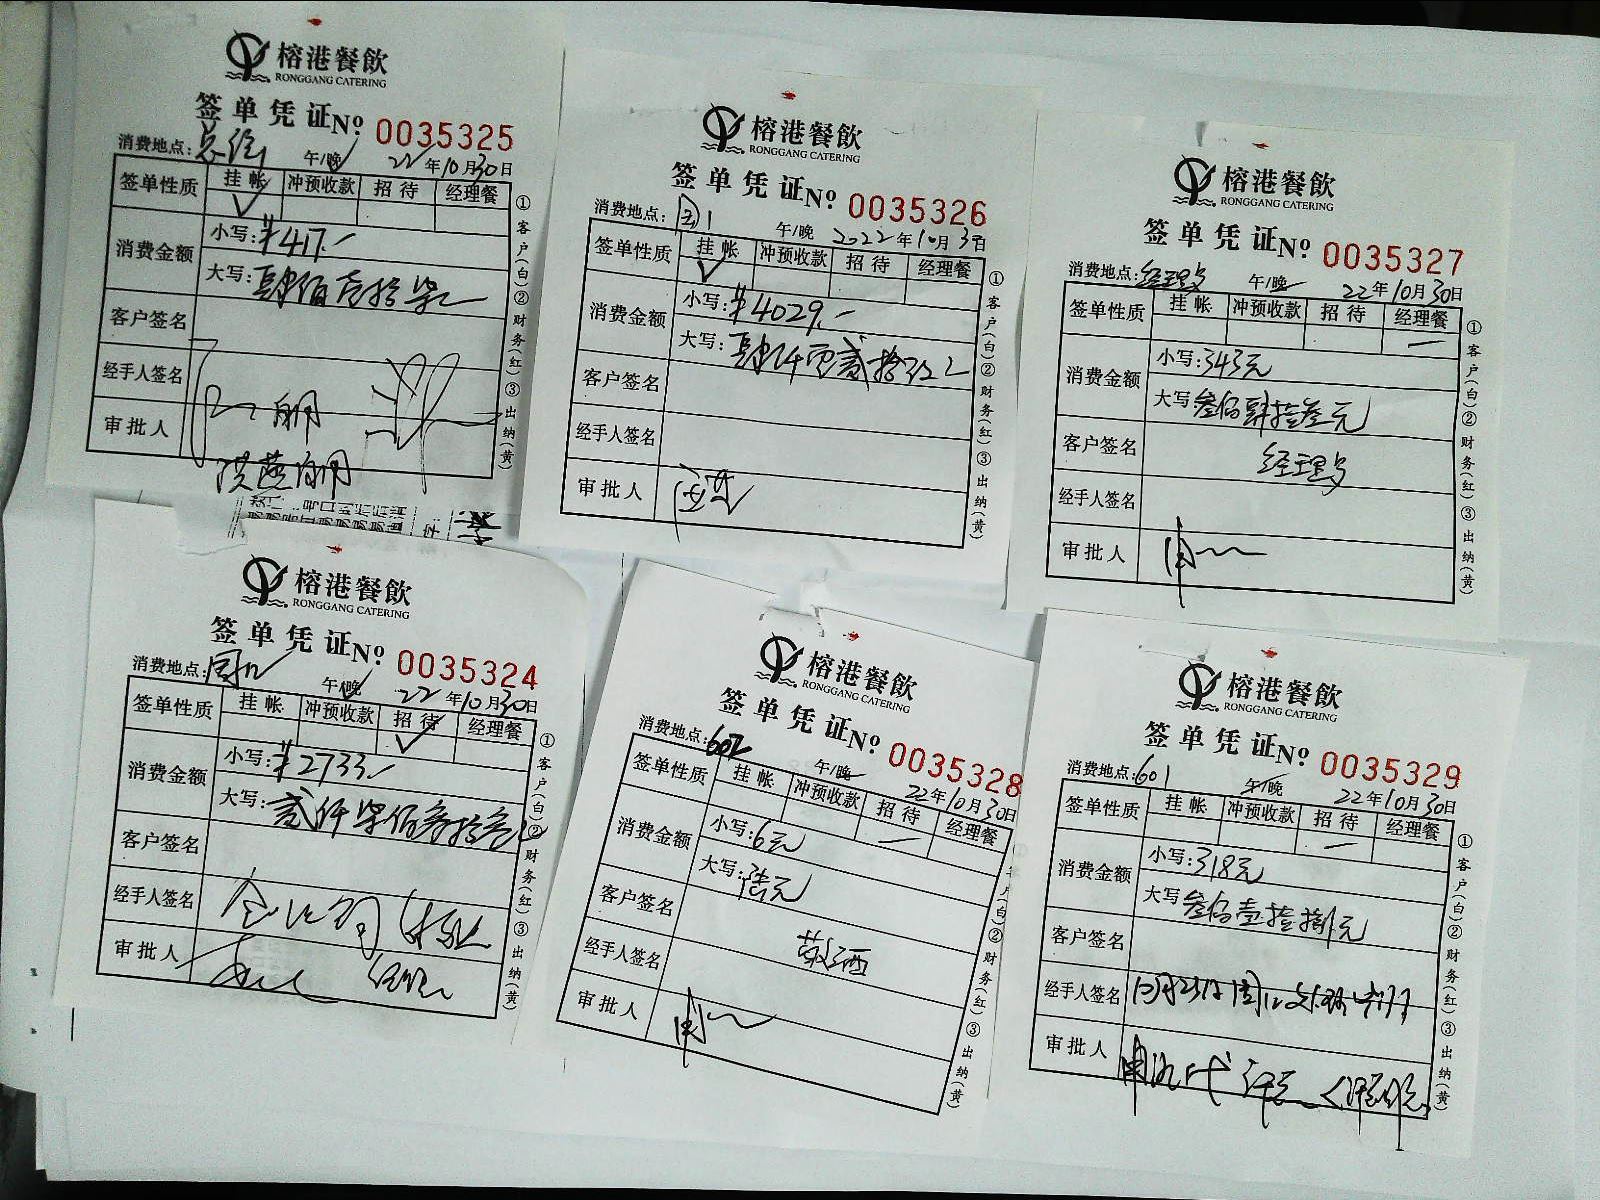 榕港餐飲
RONGGANG CATERING
签单凭证 № 0035325
消费地点: 午/晚 22年10月30日
签单性质 挂帐 冲预收款 招待 经理餐
消费金额 小写:¥417.-
大写:肆佰壹拾柒
客户签名
经手人签名
审批人
洪燕鹏
①客户(白)②财务(红)③出纳(黄)
榕港餐飲
RONGGANG CATERING
签单凭证 № 0035326
消费地点: 午/晚 2022年10月30日
签单性质 挂帐 冲预收款 招待 经理餐
消费金额 小写:¥4029.-
大写:肆仟零贰拾玖
客户签名
经手人签名
审批人
①客户(白)②财务(红)③出纳(黄)
榕港餐飲
RONGGANG CATERING
签单凭证 № 0035327
消费地点:经理 午/晚 22年10月30日
签单性质 挂帐 冲预收款 招待 经理餐
消费金额 小写:343元
大写 叁佰肆拾叁元
客户签名 经理
经手人签名
审批人
①客户(白)②财务(红)③出纳(黄)
榕港餐飲
RONGGANG CATERING
签单凭证 № 0035324
消费地点: 午/晚 22年10月30日
签单性质 挂帐 冲预收款 招待 经理餐
消费金额 小写:¥2733.-
大写:贰仟柒佰叁拾叁
客户签名
经手人签名
审批人
①客户(白)②财务(红)③出纳(黄)
榕港餐飲
RONGGANG CATERING
签单凭证 № 0035328
消费地点:602 午/晚 22年10月30日
签单性质 挂帐 冲预收款 招待 经理餐
消费金额 小写:6元
大写:陆元
客户签名
经手人签名 敬酒
审批人
①客户(白)②财务(红)③出纳(黄)
榕港餐飲
RONGGANG CATERING
签单凭证 № 0035329
消费地点:601 午/晚 22年10月30日
签单性质 挂帐 冲预收款 招待 经理餐
消费金额 小写:318元
大写 叁佰壹拾捌元
客户签名
经手人签名
审批人
①客户(白)②财务(红)③出纳(黄)